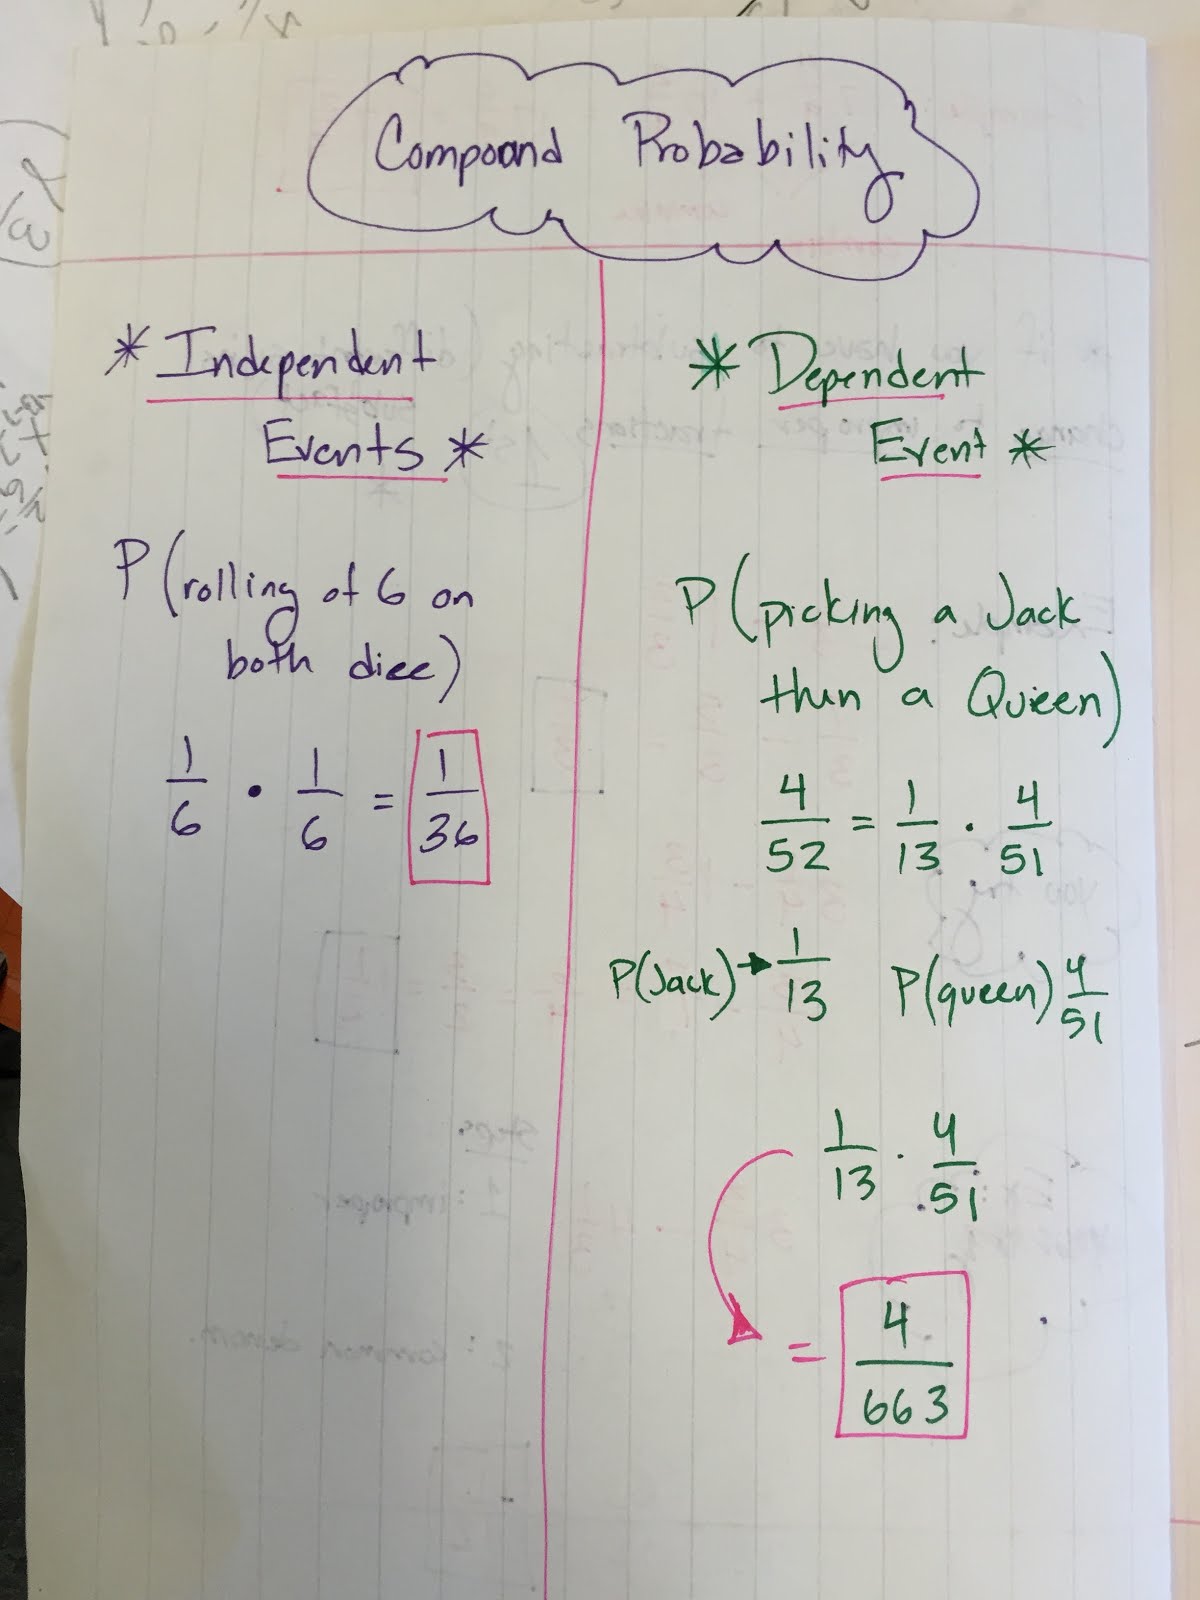 Compound Probability
* Independent
Events *
P(rolling of 6 on
both dice)
1/6 • 1/6 = 1/36
* Dependent
Event *
P(picking a Jack
then a Queen)
4/52 = 1/13 · 4/51
P(Jack) → 1/13 P(queen) 4/51
1/13 · 4/51
= 4/663